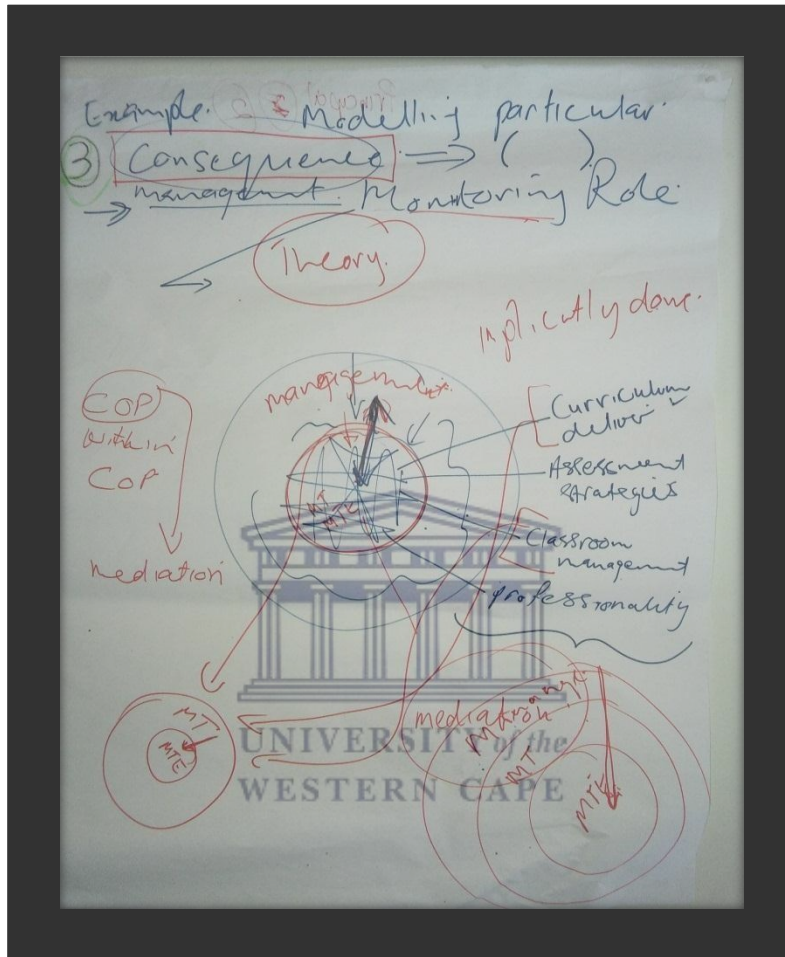 Example. Modelling particular
3 Consequence ⇒ ( )
→ management. Monitoring Role.
Theory.
Implicitly done.
management
COP
within
COP
mediation
Curriculum
deliver
Assessment
strategies
Classroom
management
professionality
MT
MTE
MT
MTE
mediation
MT
MTE
UNIVERSITY of the
WESTERN CAPE